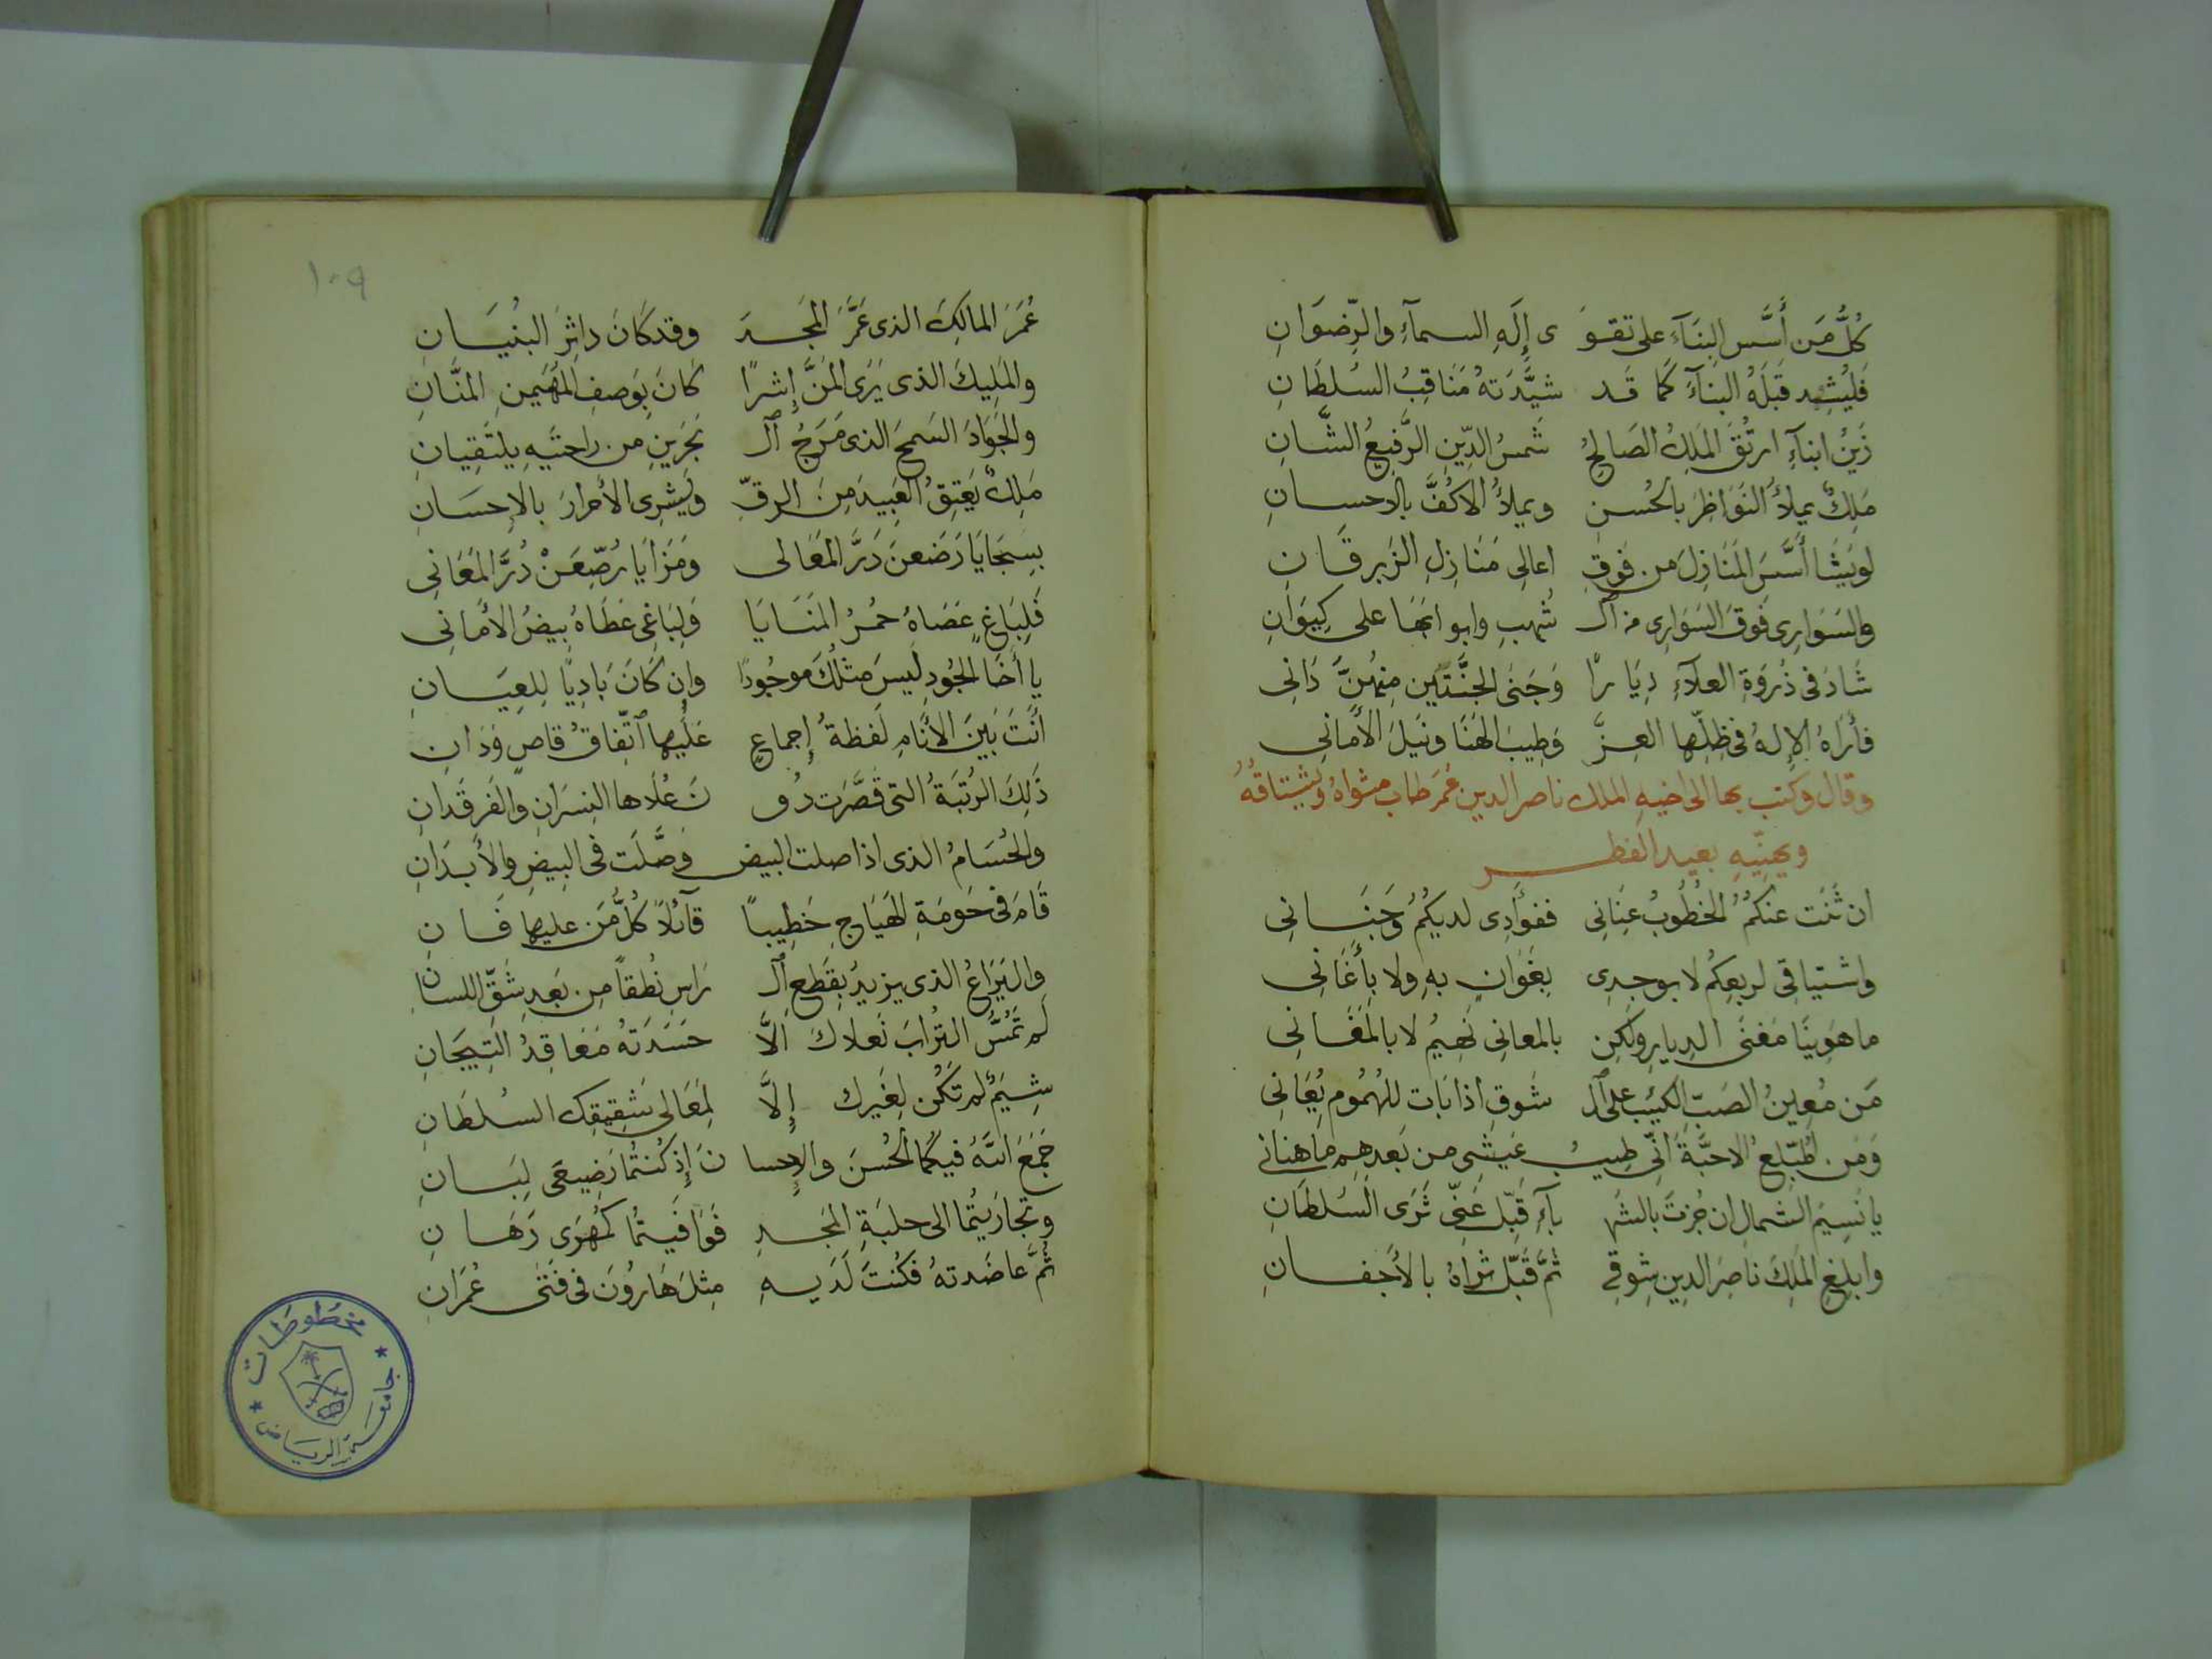 كُلُّ مَن أَسَّس البِنَآءَ على تقوَ ى إِلَهِ السمآءِ والرِّضوَانِ
فَليُشِد قَبلَهُ البنآءَ كَمَا قَد شيَّدَتهُ مَنَاقِبُ السُلطَانِ
زَينُ ابنآءِ ارتُقَ المَلِكُ الصَالحُ شَمسُ الدِّينِ الرَّفيعُ الشَّانِ
مَلِكٌ يملأُ النَوَاظِرَ بالحُسن ويملأُ الاكُفَّ بالاحسانِ
لويَشَا أَسَّسَ المَنَازِلَ من فَوقِ اعالِى مَنَازِلِ الزبرقَانِ
والسَوَارِى فَوقَ السَوَارِى من آل شُهبِ وابوابَهَا على كِيوَانِ
شَادَ فى ذُروَةِ العلآءِ دِيَارًا وَجَنَى الجنَّتَين مِنهُنَّ دَانِى
فأرَاهُ الإلهُ فى ظِلِّها العِزَّ وَطِيبَ الهَنَا ونَيلَ الأَمانِى
وقال وكتب بها الى اخيهِ الملك ناصر الدين عُمَر طاب مثواهُ ويشتاقُهُ
ويهنِّيهِ بعيد الفطر
ان ثَنَت عنكُمُ الخُطُوبُ عِنَانِى ففؤَادِى لديكُمُ وَجَنَانِى
واشتياقِى لربعِكُم لا بوجدِى بِغَوَانٍ بهِ ولا بِأَغَانِى
ما هَوِينَا مَغنَى الديارِ ولكِن بالمعانِى نَهِيمُ لا بالمَغَانِى
مَن مُعِينُ الصَبِّ الكَئيب على آل شَوقِ اذا بَات للهُمُوم يُعَانِى
وَمَن المُبلِغُ الاحبَّةَ أنِّى طِيبُ عَيشِى من بَعدِهِم ما هنانى
يا نَسِيمَ الشَمالِ ان جُزتَ بالشَه بآءِ قَبِّل عَنِّى ثَرَى السُلطَانِ
وابلِغِ المَلِكَ ناصِرَ الدِينِ شوقِى ثمَّ قَبِّل ثراهُ بالأَجفانِ
١٠٩
عُمَرَ المالِكَ الذى عَمَّرَ المَجدَ وقد كَانَ داثِرَ البنُيَانِ
والمَلِيكَ الذى يَرَى المَنَّ إِشرًا كَانَ بِوَصفِ المُهَيمنِ المنَّانِ
والجَوَادَ السَمحَ الذى مَرَجُ آل بَحَرَينِ من راحتَيهِ يلتَقِيانِ
مَلِكٌ يَعتِقُ العَبِيدَ مِنَ الرِقِّ ويَشرِى الأحرارَ بالإحسَانِ
بسِجَايَا رَضَعنَ دَرَّ المَعَالى وَمَزَايَا رُصِّعَنْ دُرَّ المَعَانِى
فَلِبَاغٍ عَصَاهُ حُمرُ المَنَايَا وَلِبَاغِى عَطَاهُ بِيضُ الأَمانِى
يا أَخَا الجُودِ لَيسَ مثلُكَ موجُودًا وإن كَانَ بَادِيًا لِلعِيَانِ
أنتَ بَينَ الأَنَامِ لَفظةُ إجماعٍ عَليها اَتّفاقُ قاصٍ وَدَانِ
ذَلِكَ الرُتبَةُ التى قَصَّرَت دُو نَ عُلَاها النِسرَانِ والفَرقَدانِ
والحُسَامُ الذى اذا صلت البيض وَصَّلَت فى البِيضِ والأبدَانِ
قَامَ فى حَومَةِ الهَيَاجِ خَطِيبًا قآئلاً كُلُّ مَن عليها فَانِ
واليَرَاعُ الذى يزيدُ بِقَطعِ آل رَاسِ نُطقًا مِن بَعدِ شَقِّ اللسانِ
لم تَمَسُّ التُرابَ نَعلاكَ اِلَّا حَسَدَتهُ مَعَاقِدُ التيجَانِ
شِيَمٌ لم تَكُن لِغَيرك إِلَّا لِمَعَالى شقِيقِك السُلطَانِ
جَمَعَ اللَّهُ فيكُمَا الحُسنَ والإِحسا نَ إِذ كُنتُمَا رَضِيعَى لِبَانِ
وتجارَيتُمَا الى حلبَةِ المَجدِ فَوَافَيتُمَا كَمُهرَى رِهَانِ
ثُمَّ عاضَدتهُ فَكُنتَ لَدَيهِ مِثلَ هَارُونَ فى فَتَى عُمرَانِ
مخطوطات
جامعة الرياض